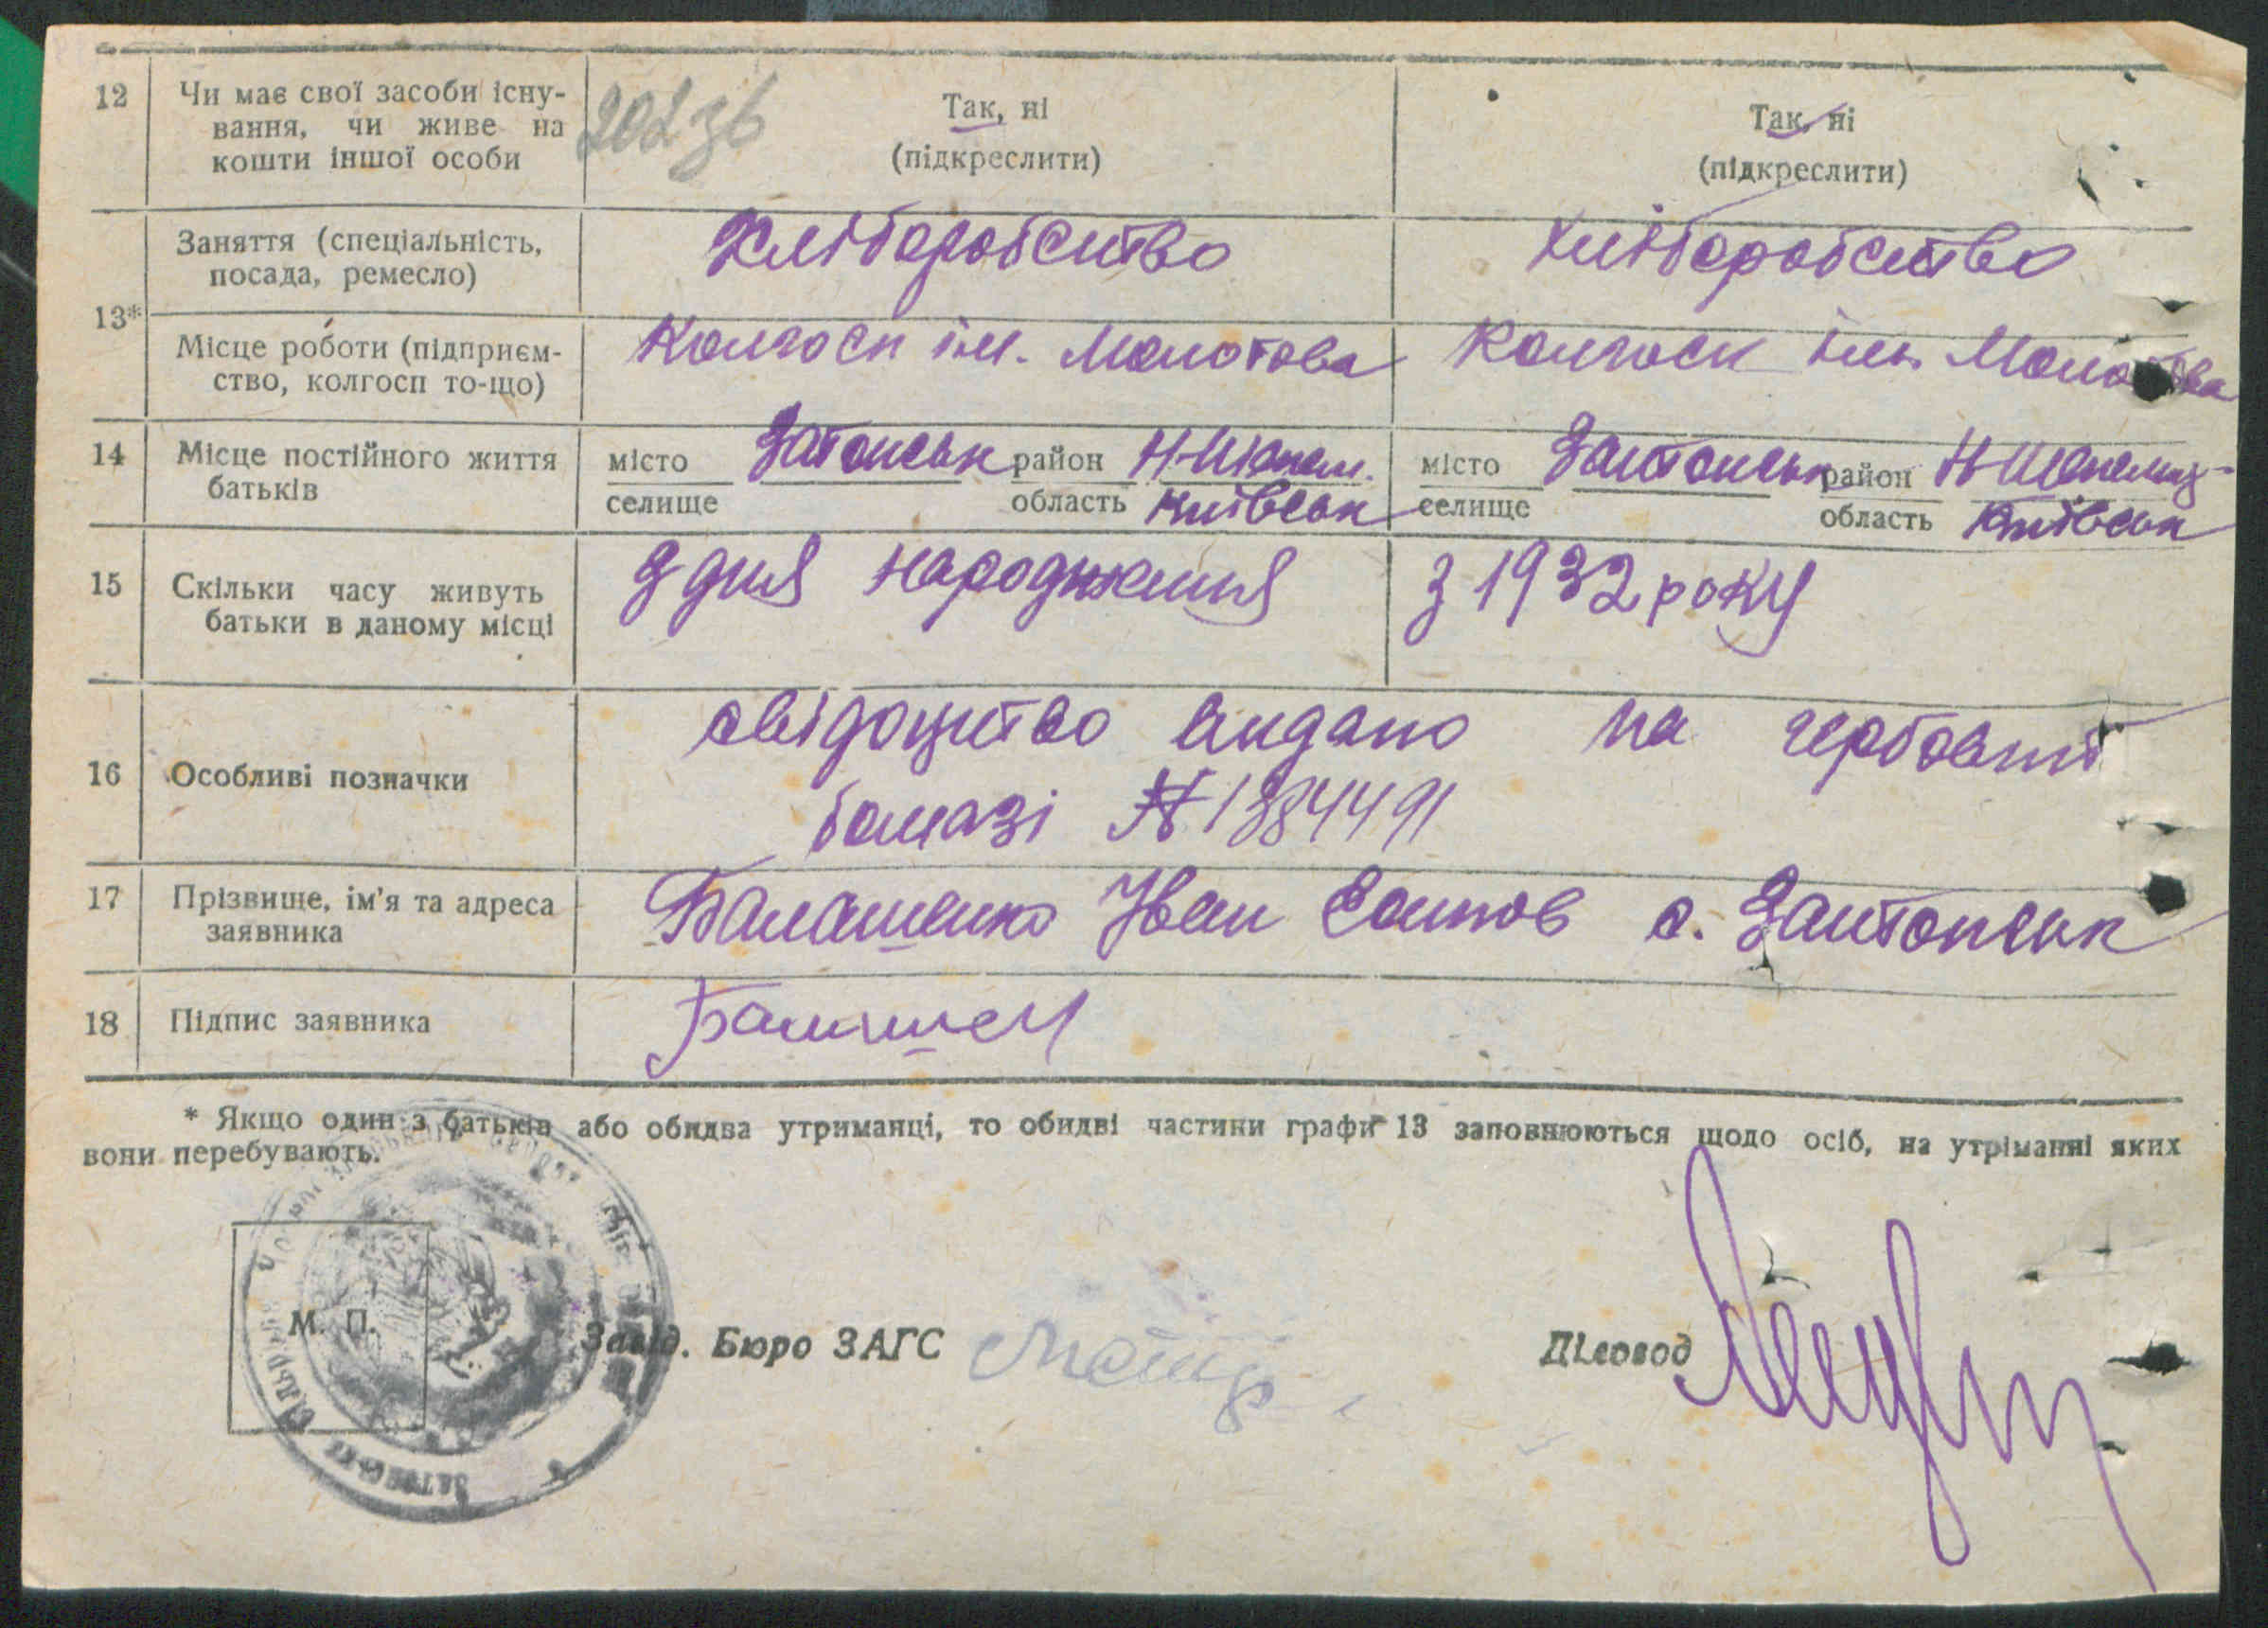 202зв
12 Чи має свої засоби існу-
вання, чи живе на
кошти іншої особи
Так, ні
(підкреслити)
Так, ні
(підкреслити)
13*
Заняття (спеціальність,
посада, ремесло)
Хліборобство
Хліборобство
Місце роботи (підприєм-
ство, колгосп то-що)
Колгосп ім. Молотова
Колгосп ім. Молотова
14 Місце постійного життя
батьків
місто
селище
Затонськ
район Н-Шапел.
область Київськ
місто
селище
Затонськ
район Н-Шепелиц-
область Київськ
15 Скільки часу живуть
батьки в даному місці
З дня народження
з 1932 року
16 Особливі позначки
свідоцтво видано на гербовий
бомазі № 1384491
17 Прізвище, ім'я та адреса
заявника
Балашенко Іван с. Затонськ
18 Підпис заявника
* Якщо один з батьків або обидва утриманці, то обидві частини графи 13 заповнюються щодо осіб, на утріманні яких
вони перебувають.
М. П.
Завід. Бюро ЗАГС
Діловод